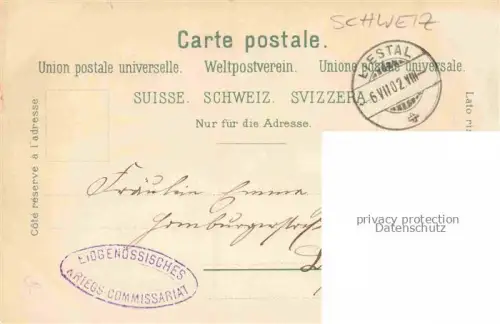 SCHWEIZ
Carte postale.
Union postale universelle. Weltpostverein. Unione postale universale.
SUISSE. SCHWEIZ. SVIZZERA.
Nur für die Adresse.
Côté réservé à l'adresse
Lato ri
LIESTAL
6.VII.02.VIII
Fräulein Emma
Homburgerstr
EIDGENÖSSISCHES
KRIEGS-COMMISSARIAT
privacy protection
Datenschutz